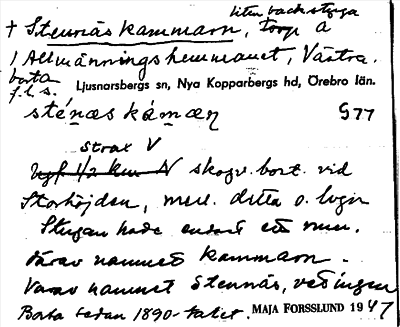 liten backstuga
† Stennäskammarn, torp å
/ Allmänningshemmanet, Västra.
borta
f.l.s.
Ljusnarsbergs sn, Nya Kopparbergs hd, Örebro län.
sté̱næskám̱æn̥ S77
strax V
1/2 km N skogv. bort. vid
Storhöjden, mell. detta o. logen
Stugan hade endast ett rum.
Därav namnet kammarn.
Varav namnet Stennäs, vet ingen
Borta sedan 1890-talet. MAJA FORSSLUND 1947